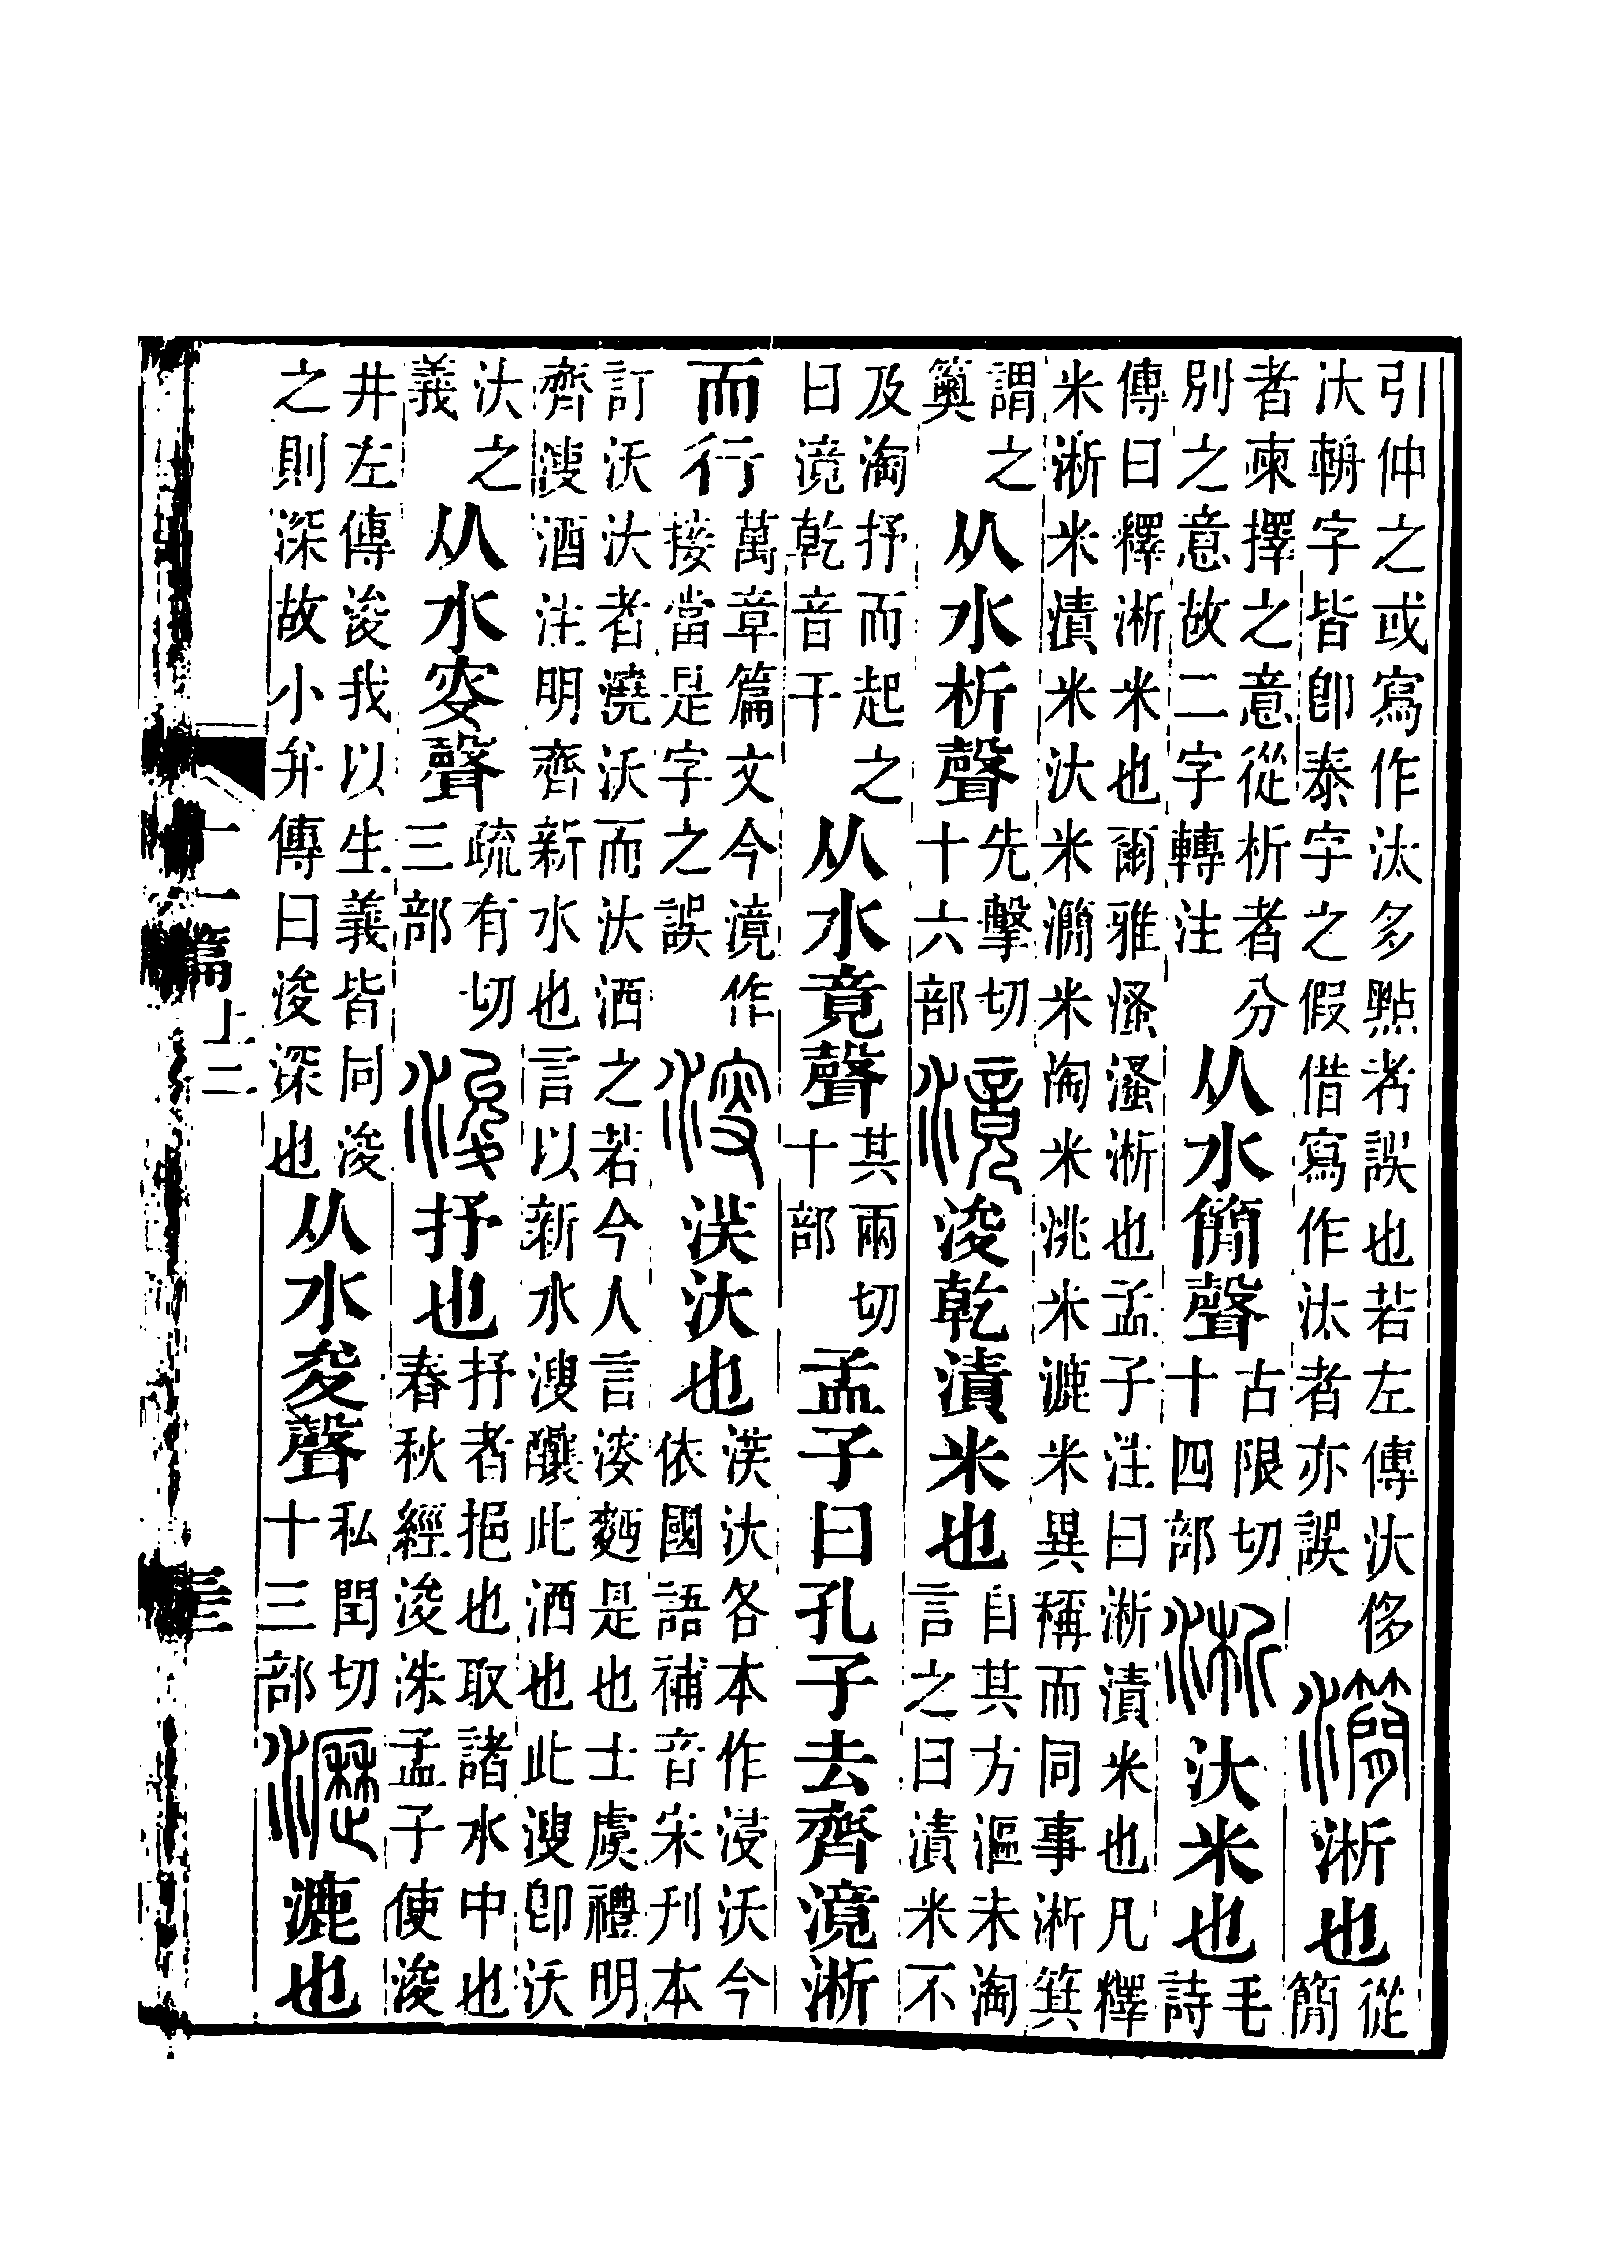 引伸之或寫作汰多點者誤也若左傳汏侈
汏輈字皆卽泰字之假借寫作汰者亦誤
灡淅也從
簡
者柬擇之意從析者分
別之意故二字轉注
从水簡聲古限切
十四部
淅汏米也毛
詩
傳曰釋淅米也爾雅溞溞淅也孟子注曰淅漬米也凡釋
米淅米漬米汏米灡米淘米洮米漉米異稱而同事淅箕
謂之
籅
从水析聲先擊切
十六部
滰浚乾漬米也自其方漚未淘
言之曰漬米不
及淘抒而起之
曰滰乾音干
从水竟聲其兩切
十部
孟子曰孔子去齊滰淅
而行萬章篇文今滰作
接當是字之誤
溲汏也汏各本作浸沃今
依國語補音宋刊本
訂沃汏者澆沃而汏洒之若今人言麪是也士虞禮明
齊溲酒注明齊新水也言以新水溲釀此酒也此溲卽沃
汏之
義
从水叜聲疏有切
三部
浚抒也抒者挹也取諸水中也
春秋經浚洙孟子使浚
井左傳浚我以生義皆同浚
之則深故小弁傳曰浚深也
从水夋聲私閏切
十三部
瀝漉也
十一篇上二